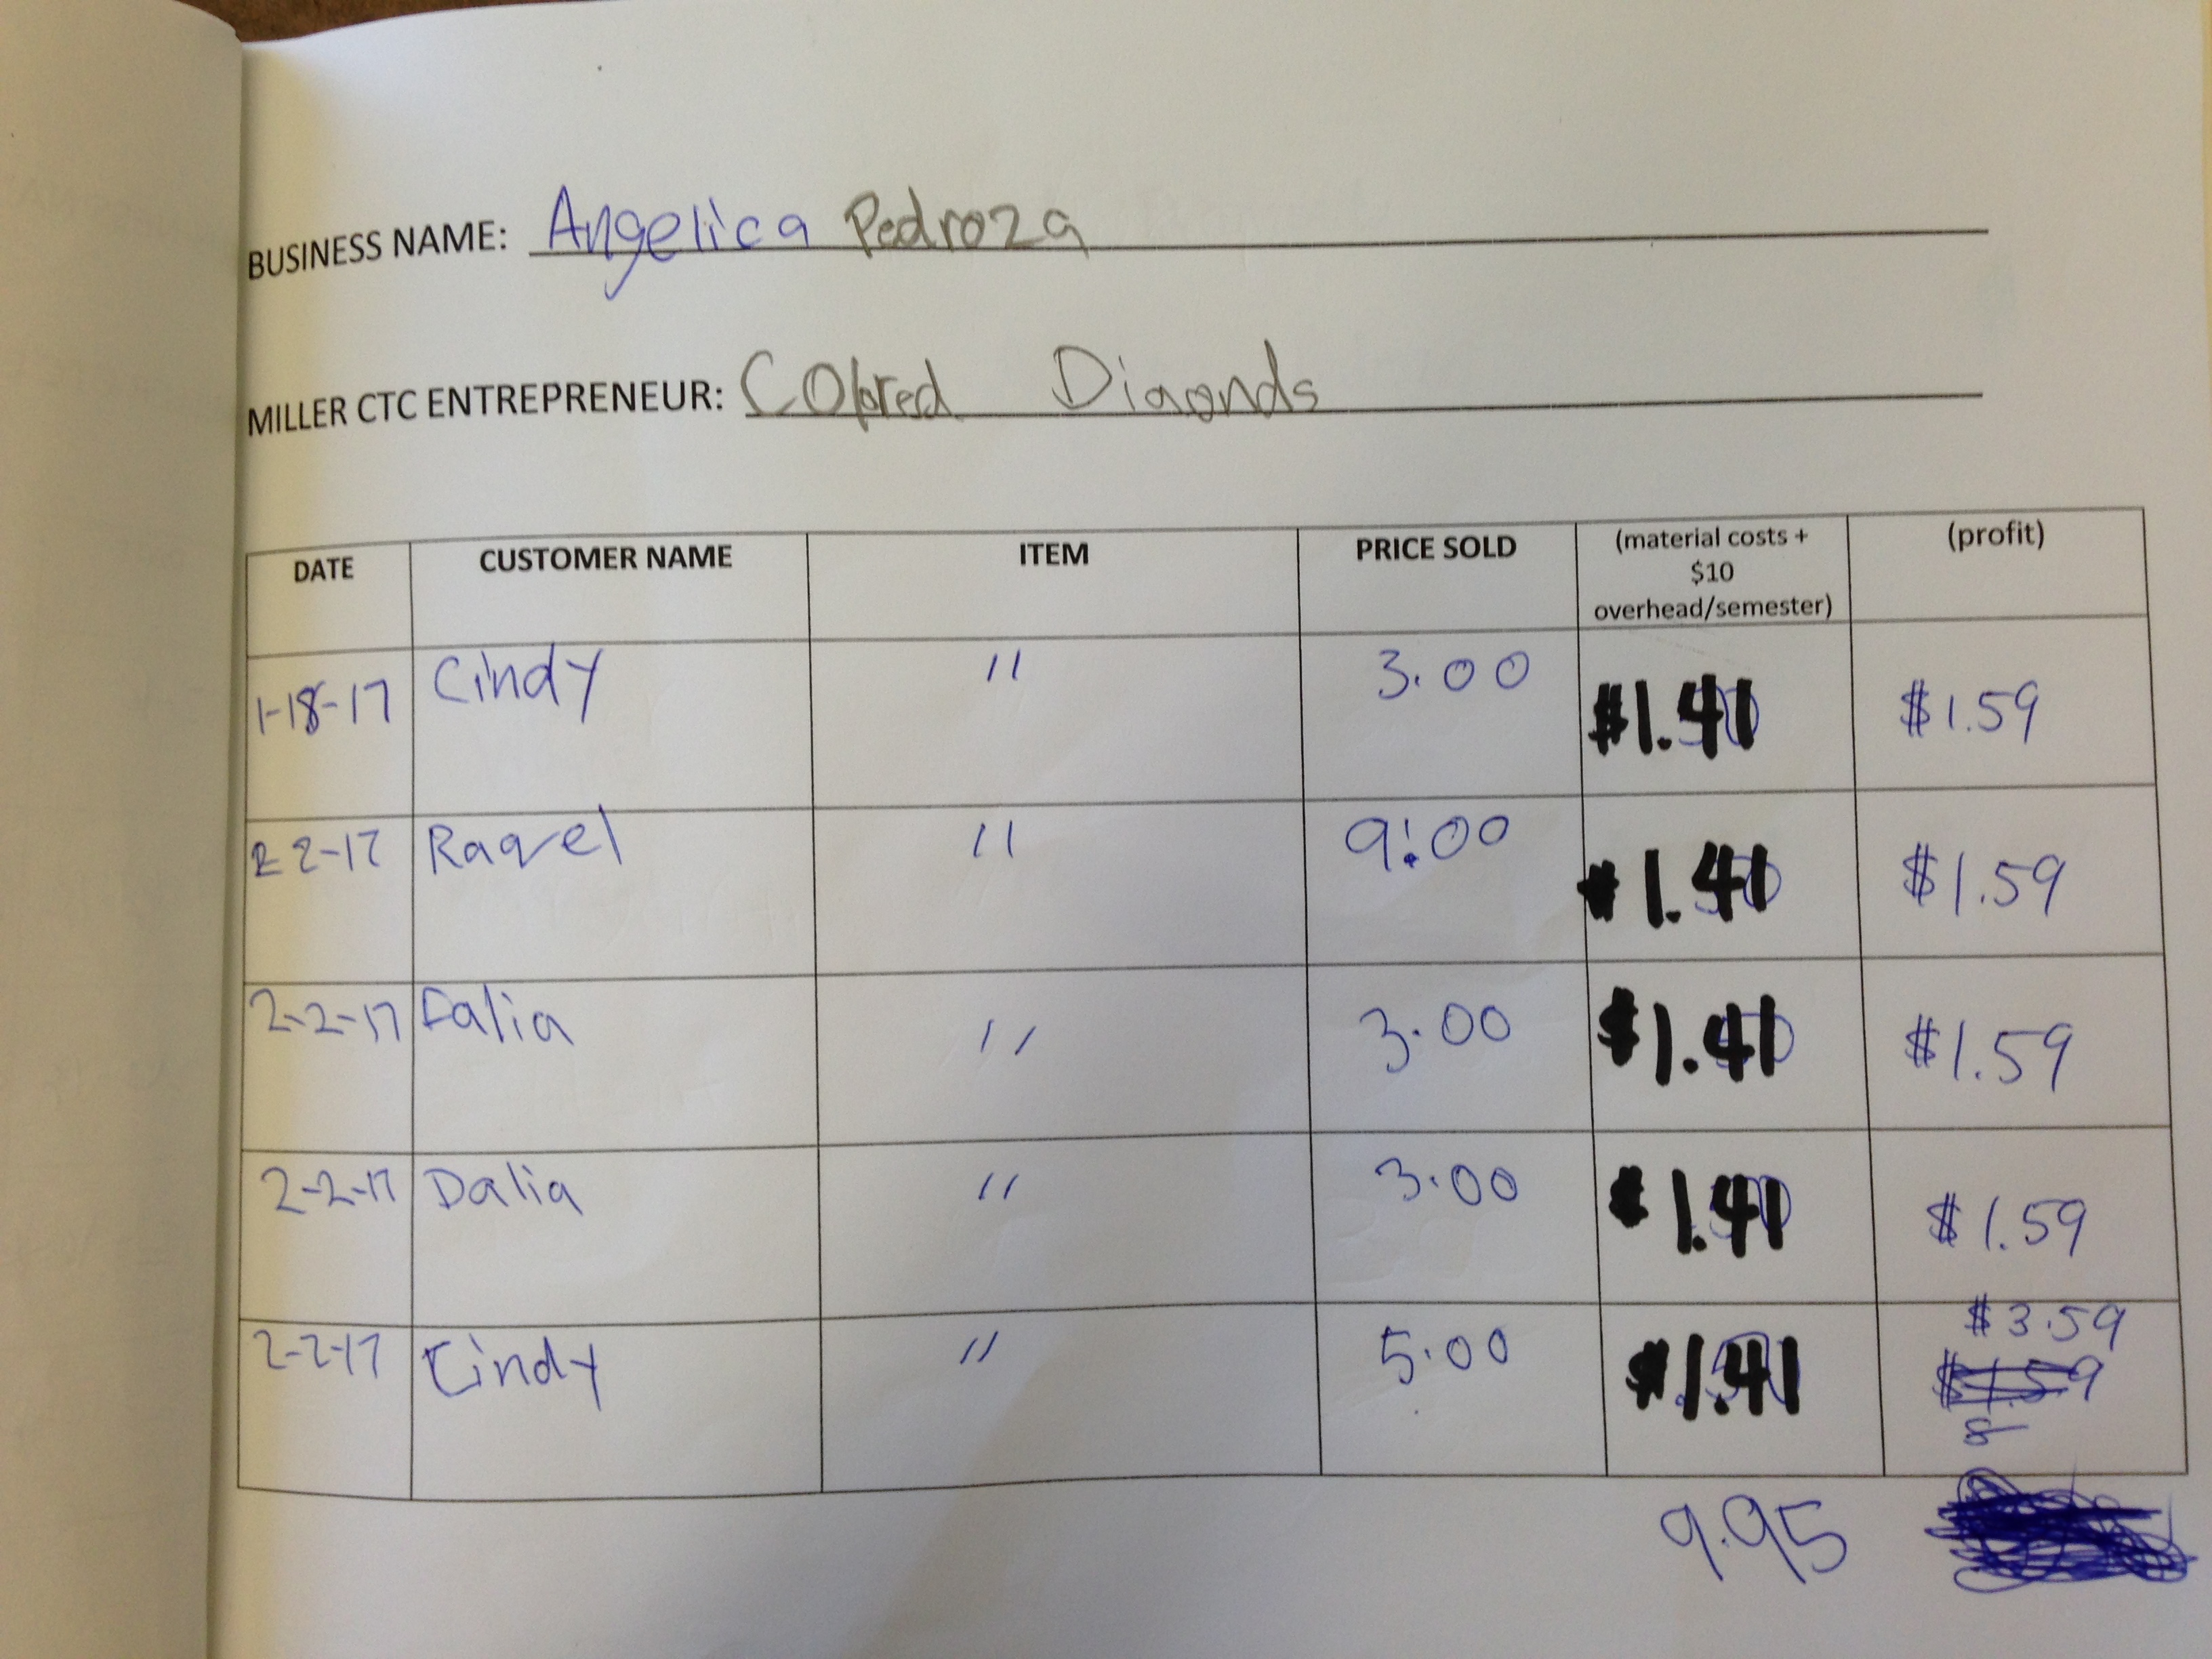 BUSINESS NAME: Angelica Pedroza
MILLER CTC ENTREPRENEUR: Colored Diaonds
DATE CUSTOMER NAME ITEM PRICE SOLD (material costs + $10 overhead/semester) (profit)
1-18-17 Cindy " 3.00 $1.41 $1.59
2 2-17 Raqvel " 9:00 $1.41 $1.59
2-2-17 Dalia " 3.00 $1.41 $1.59
2-2-17 Dalia " 3.00 $1.41 $1.59
2-2-17 Cindy " 5.00 $1.41 $3.59
$1.59
9.95